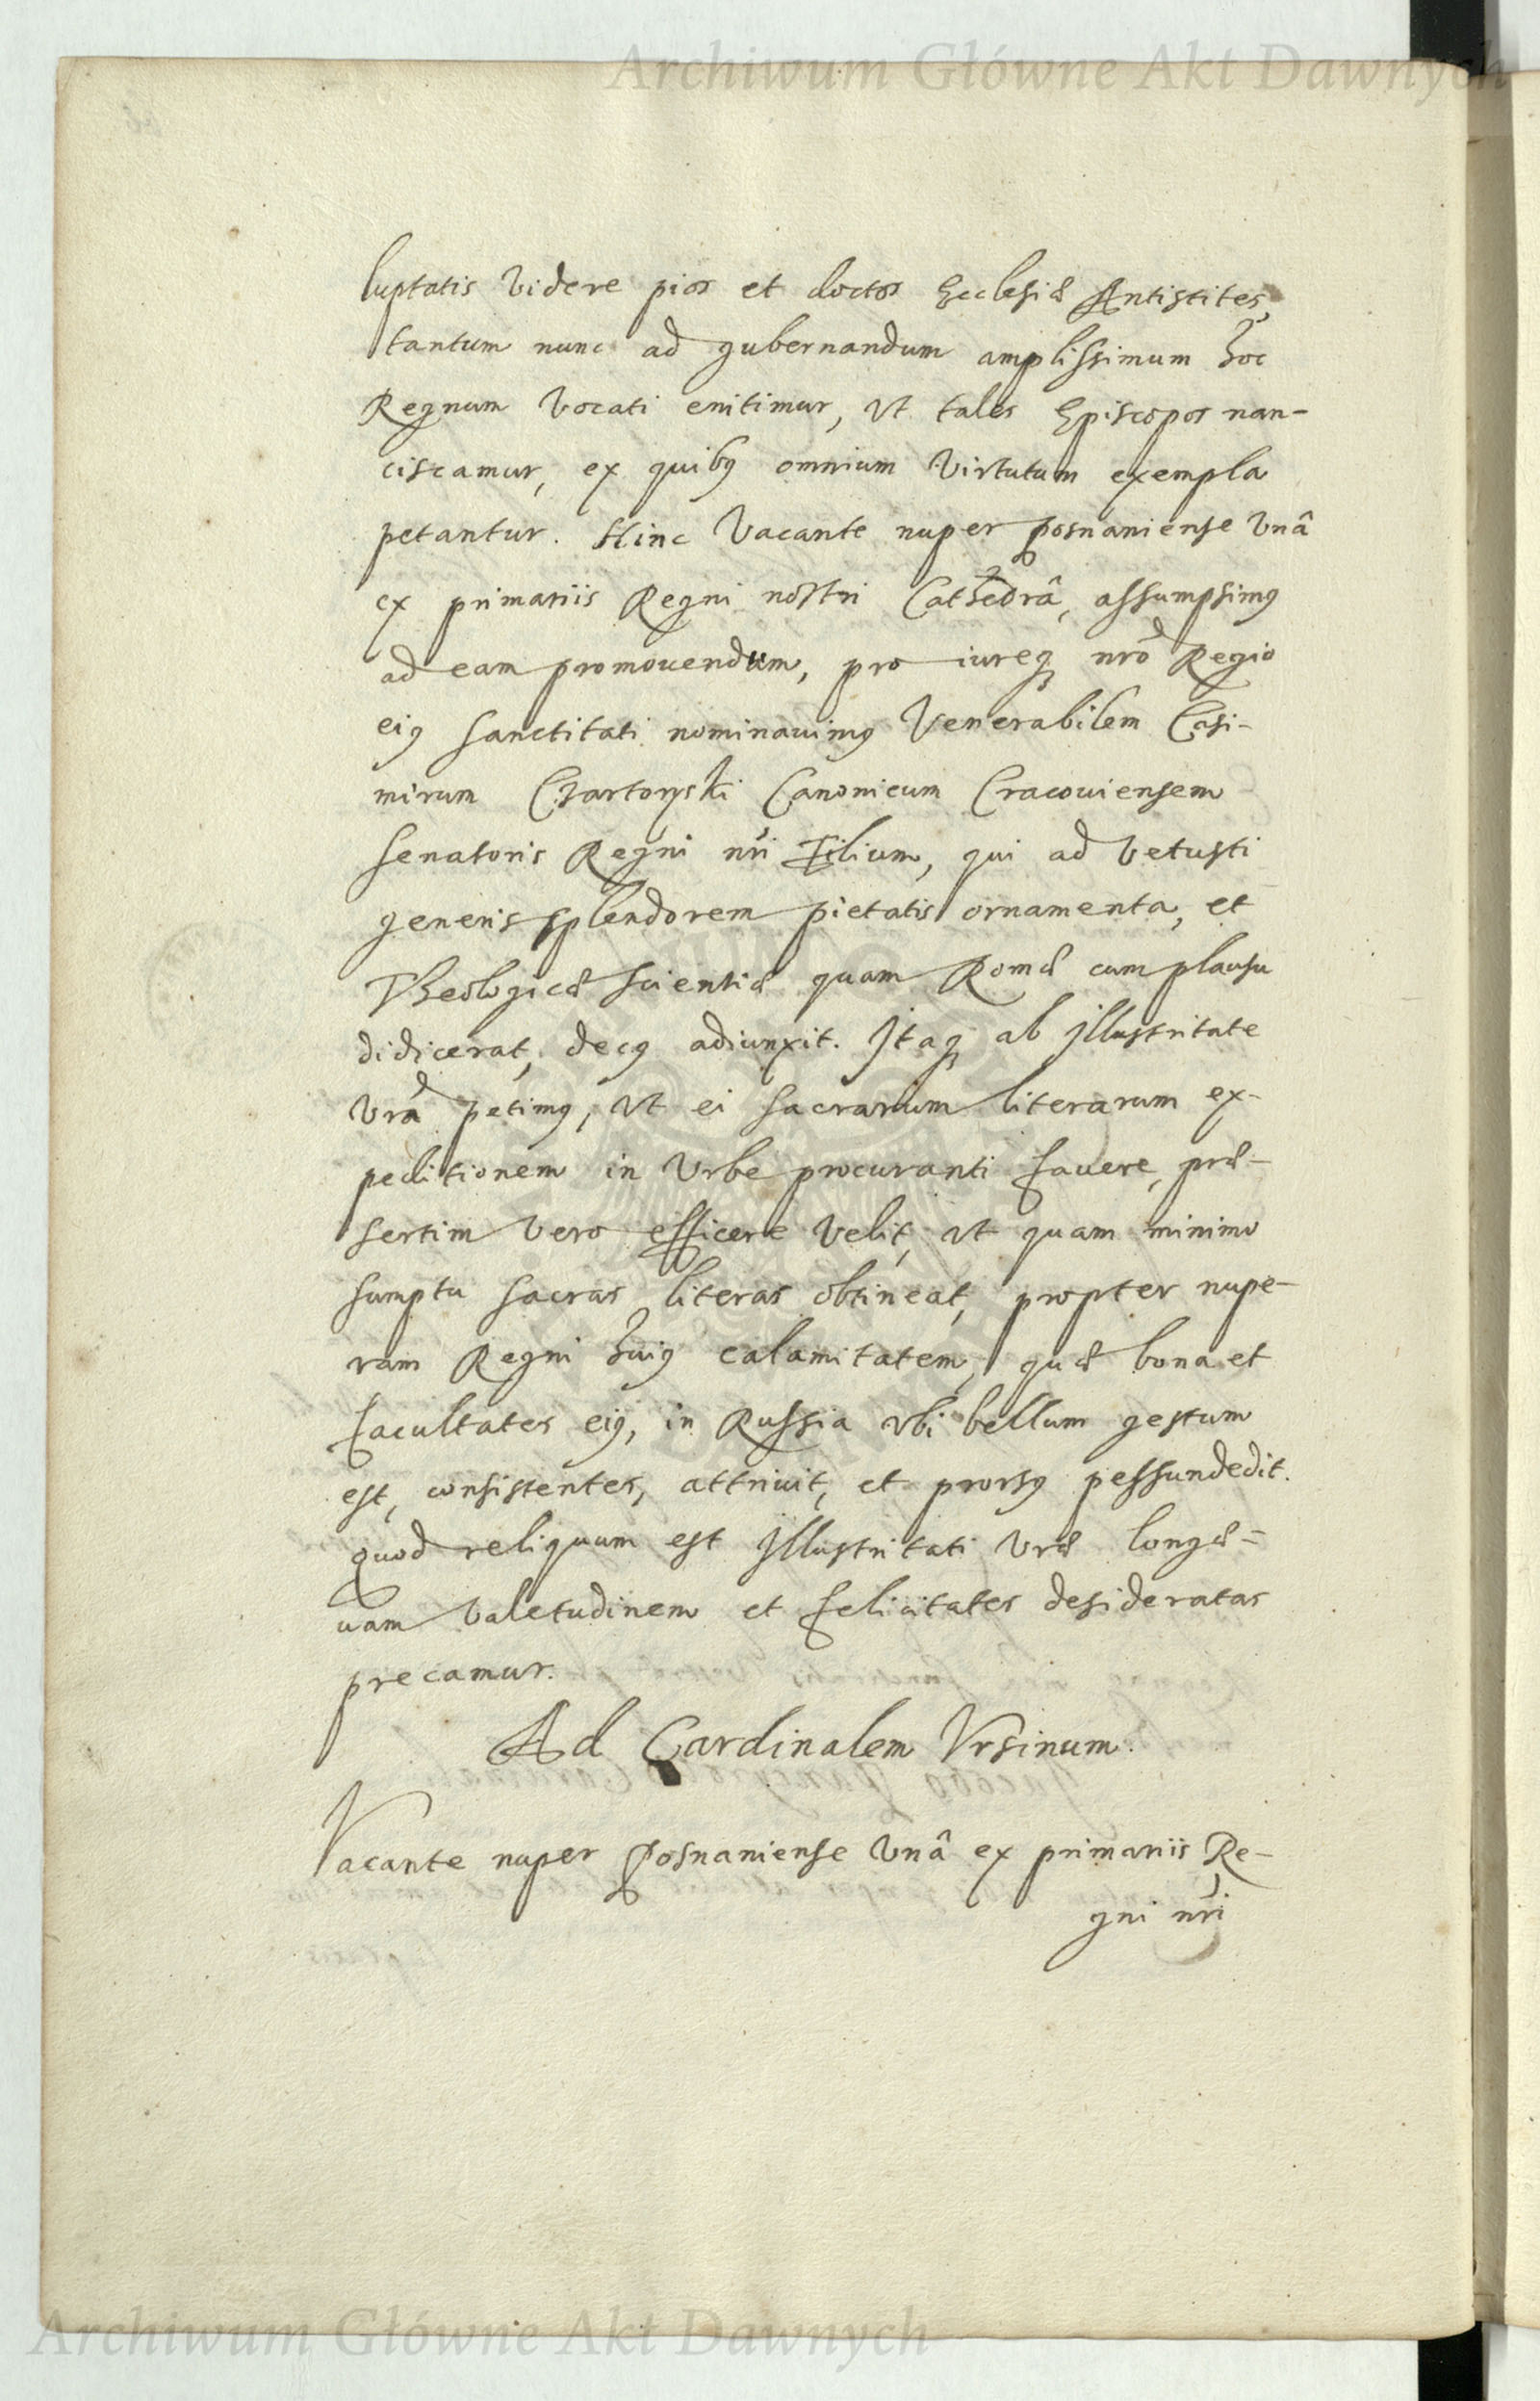 Archiwum Główne Akt Dawnych
luptatis videre pios et doctos Ecclesiæ Antistites,
tantum nunc ad gubernandum amplissimum hoc
Regnum vocati enitimur, vt tales Episcopos nan-
ciscamur, ex quibꝰ omnium virtutum exempla
petantur. Hinc vacante nuper Posnaniense vnâ
ex primariis Regni nostri Cathedrâ, assumpsimꝰ
ad eam promouendum, pro iureqꝫ nrõ Regio
eiꝰ sanctitati nominauimꝰ Venerabilem Casi-
mirum Czartoryski Canonicum Cracouiensem
Senatoris Regni nri Filium, qui ad vetusti
generis splendorem pietatis ornamenta, et
Theologicæ scientiæ quam Romæ cum plausu
didicerat, decꝰ adiunxit. Itaqꝫ ab Illustritate
Vrã petimꝰ, vt ei sacrarum literarum ex-
peditionem in Vrbe procuranti fauere, præ-
sertim vero efficere velit, vt quam minimo
sumptu sacras literas obtineat, propter nupe-
ram Regni huiꝰ calamitatem, quæ bona et
facultates eiꝰ, in Russia vbi bellum gestum
est, consistentes, attriuit, et prorsꝰ pessundedit.
quod reliquum est Illustritati Vræ longæ-
uam valetudinem et felicitates desideratas
precamur.
Ad Cardinalem Vrsinum.
Vacante nuper Posnaniense vnâ ex primariis Re-
gni nri
Archiwum Główne Akt Dawnych